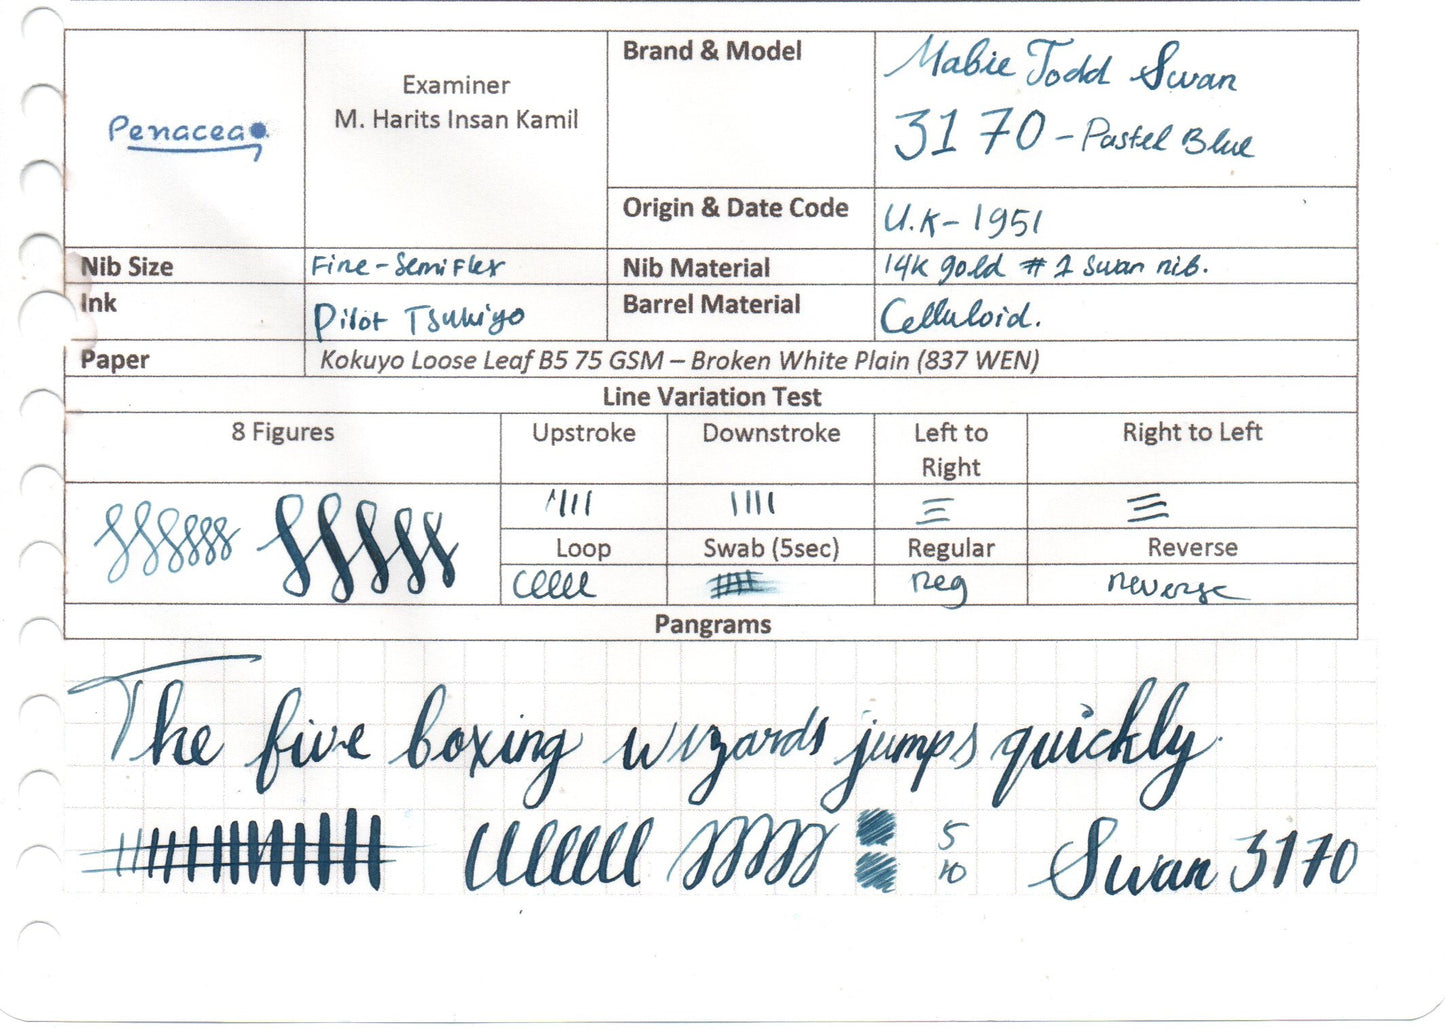 Penacea
Examiner
M. Harits Insan Kamil
Brand & Model
Mabie Todd Swan
3170 - Pastel Blue
Origin & Date Code
U.K - 1951
Nib Size
Fine - Semi Flex
Nib Material
14K gold # 2 Swan nib.
Ink
Pilot Tsukiyo
Barrel Material
Celluloid.
Paper
Kokuyo Loose Leaf B5 75 GSM – Broken White Plain (837 WEN)
Line Variation Test
8 Figures
Upstroke
Downstroke
Left to
Right
Right to Left
Loop
Swab (5sec)
Regular
Reverse
Reg
reverse
Pangrams
The five boxing wizards jumps quickly.
5
10
Swan 3170